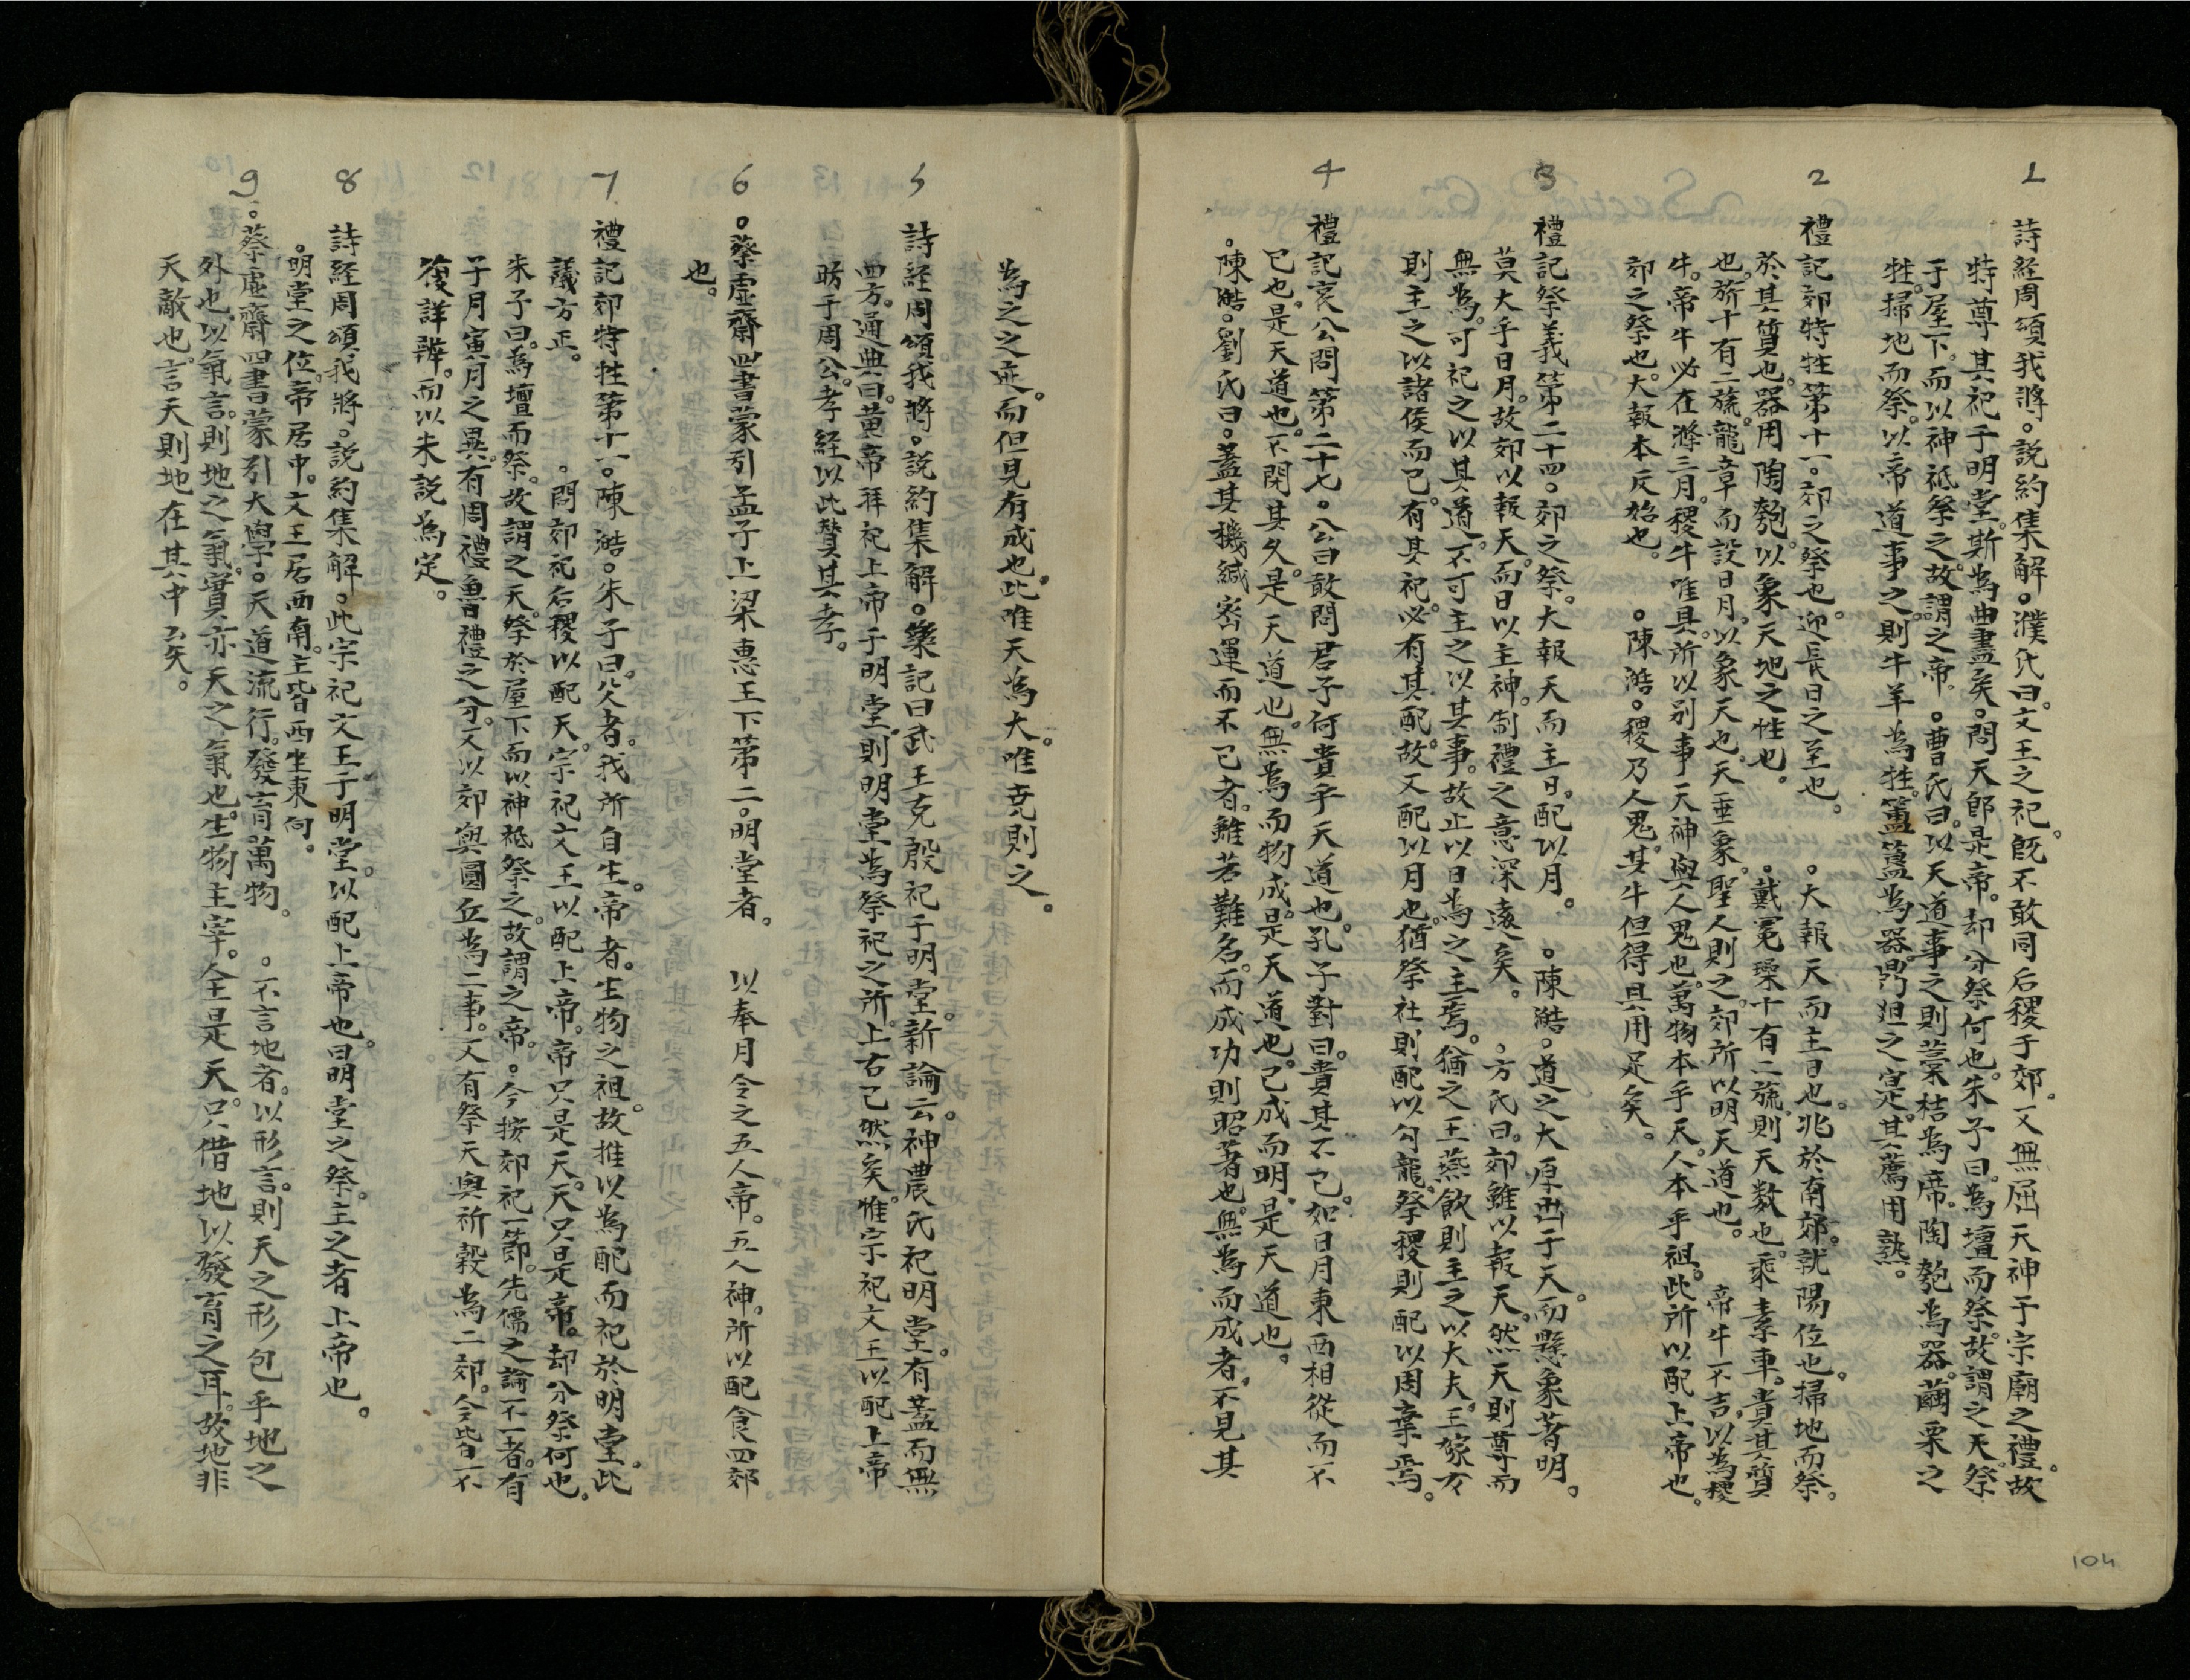 1
詩経周頌我將。說約集解。濮氏曰。文王之祀。既不敢同后稷于郊。又無屈天神于宗廟之禮。故
特尊其祀于明堂。斯為曲盡矣。問天郎是帝。却分祭何也。朱子曰。為壇而祭。故謂之天。祭
于屋下。而以神祗祭之。故謂之帝。。曹氏曰。以天道事之。則藁秸為席。陶匏為器。繭栗之
牲。掃地而祭。以帝道事之。則牛羊為牲。簠簋為器。鼎俎之寔。其薦用熟。
2
禮記郊特牲第十一。郊之祭也。迎長日之至也。。大報天而主日也。兆於南郊。就陽位也。掃地而祭。
於其質也。器用陶匏。以象天地之性也。。戴冕璪十有二旒。則天数也。乘素車。貴其質
也。旂十有二旒。龍章而設日月。以象天也。天垂象。聖人則之。郊所以明天道也。帝牛不吉。以為稷
牛。帝牛必在滌三月。稷牛唯具。所以別事天神與人鬼也。萬物本乎天。人本乎祖。此所以配上帝也。
郊之祭也。大報本反始也。。陳澔。稷乃人鬼。其牛但得具用足矣。
3
禮記祭義第二十四。郊之祭。大報天而主日。配以月。。陳澔。道之大原出于天。而懸象著明。
莫大乎日月。故郊以報天。而日以主神。制禮之意深遠矣。。方氏曰。郊雖以報天。然天則尊而
無為。可祀之以其道。不可主之以其事。故止以日為之主焉。猶之王燕飲則主之以大夫。王嫁女
則主之以諸侯而已。有其祀。必有其配。故又配以月也。猶祭社則配以勾龍。祭稷則配以周棄焉。
4
禮記哀公問第二十七。公曰敢問君子何貴乎天道也。孔子對曰。貴其不已。如日月東西相從而不
已也。是天道也。不閉其久。是天道也。無為而物成。是天道也。已成而明。是天道也。
。陳澔。劉氏曰。蓋其機緘密運而不已者。雖若難名。而成功則昭著也。無為而成者。不見其
104
為之之迹。而但見有成也。此唯天為大。唯尭則之。
5
詩経周頌我將。說約集解。樂記曰武王克殷祀于明堂。新論云。神農氏祀明堂。有蓋而無
四方。通典曰。黄帝拜祀上帝于明堂。則明堂為祭祀之所。上古已然矣。惟宗祀文王以配上帝
昉于周公。孝経以此贊其孝。
6
。蔡虛齋四書蒙引孟子上梁惠王下第二。明堂者。以奉月令之五人帝。五人神。所以配食四郊
也。
7
禮記郊特牲第十一。陳澔。朱子曰。父者。我所自生。帝者。生物之祖。故推以為配而祀於明堂。此
議方正。。問郊祀后稷以配天。宗祀文王以配上帝。帝只是天。天只是帝。却分祭何也。
朱子曰。為壇而祭。故謂之天。祭於屋下而以神祗祭之。故謂之帝。。今按郊祀一節。先儒之論不一者。有
子月寅月之異。有周禮魯禮之分。又以郊與圓丘為二事。又有祭天與祈穀為二郊。今皆不
復詳辨。而以朱說為定。
8
詩経周頌我將。說約集解。此宗祀文王于明堂。以配上帝也。曰明堂之祭。主之者上帝也。
。明堂之位。帝居中。文王居西南。主皆西坐東向。
9
。蔡虛齋四書蒙引大學。天道流行。發育萬物。。不言地者。以形言。則天之形包乎地之
外也。以氣言。則地之氣。實亦天之氣也。生物主宰。全是天。只借地以發育之耳。故地非
天敵也。言天則地在其中矣。